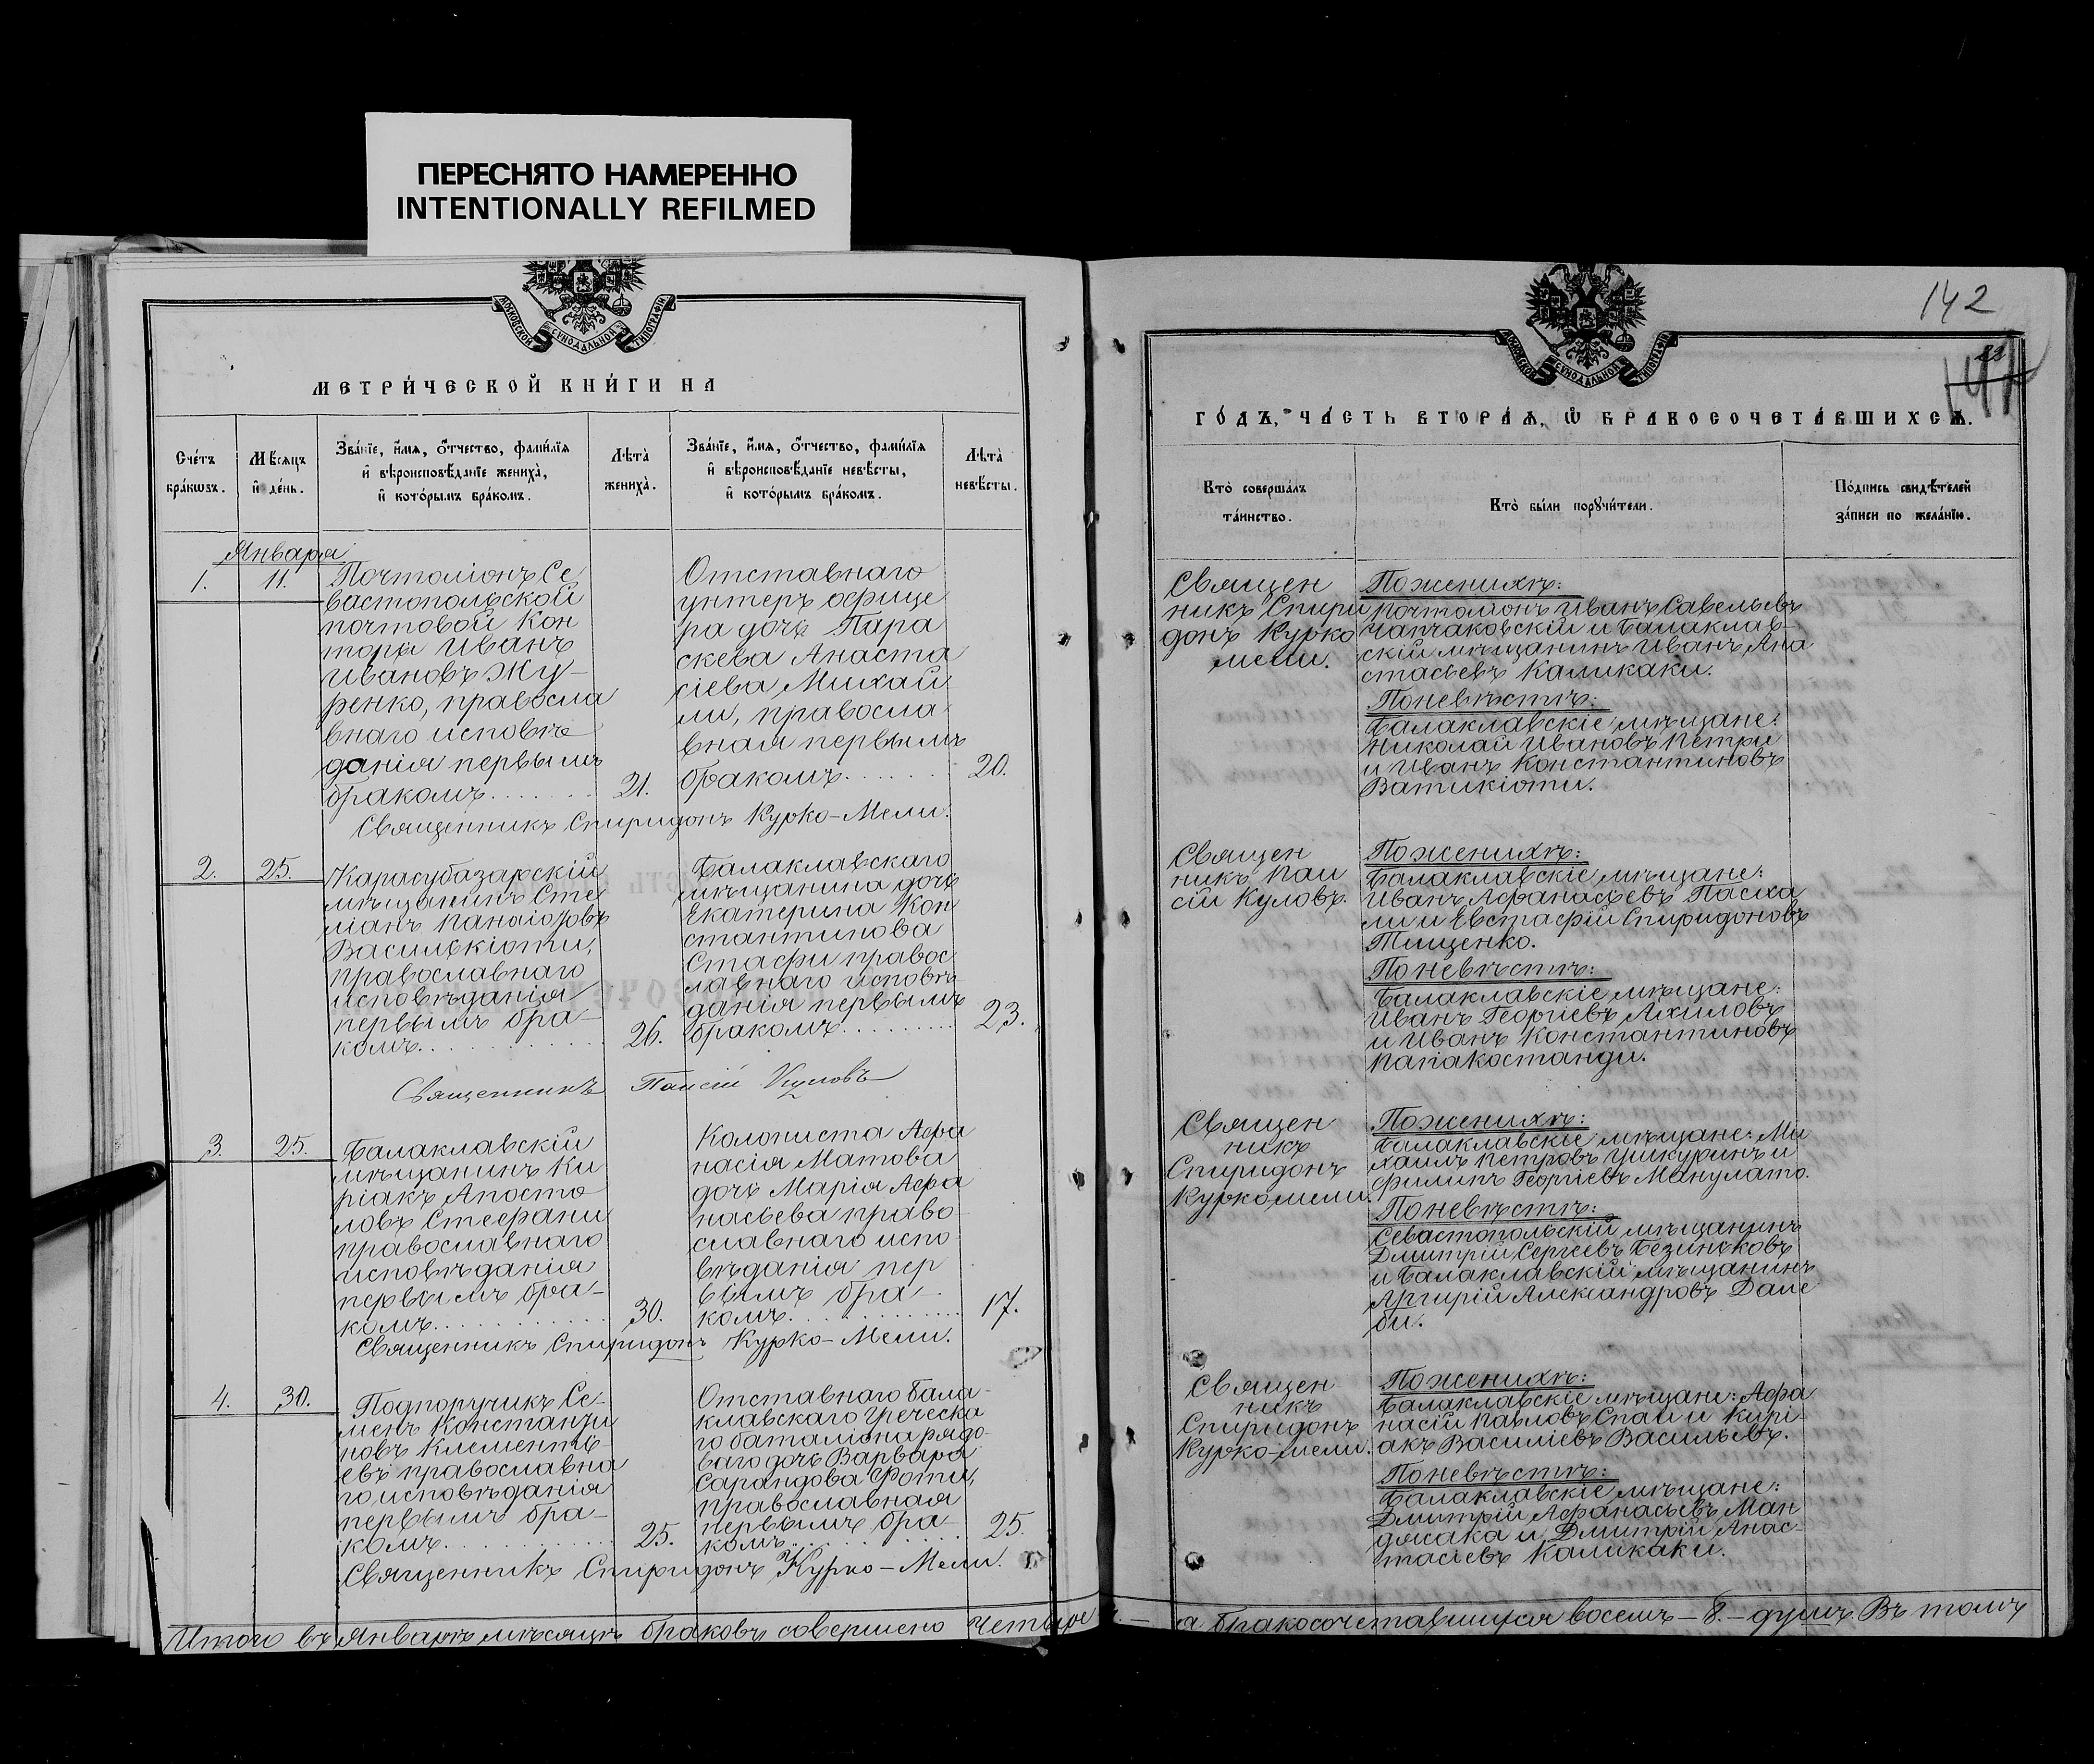 ПЕРЕСНЯТО НАМЕРЕННО
INTENTIONALLY REFILMED
МОСКОВСКОЙ СѴНОДАЛЬНОЙ ТИПОГРАФІИ
МЕТРИ́ЧЕСКОЙ КНИ́ГИ НА
Сче́тъ
бра́кѡвъ.
Мѣ́сяцъ
и҆ де́нь.
Зва́нїе, и҆́мѧ, ѻ҆́тчество, фами́лїѧ
и҆ вѣроисповѣ́данїе жениха̀,
и҆ кото́рымъ бра́комъ.
Лѣта̀
жениха̀.
Зва́нїе, и҆́мѧ, ѻ҆́тчество, фами́лїѧ
и҆ вѣроисповѣ́данїе невѣ́сты,
и҆ кото́рымъ бра́комъ.
Лѣта̀
невѣ́сты.
Января
1.
11.
Почталіонъ Се
вастопольской
почтовой Кон
торы Иванъ
Ивановъ Жу-
ренко, правосла
внаго исповѣ
данія первымъ
бракомъ.......
21.
Отставнаго
унтеръ офице
ра дочь Пара
скева Анаста
сіева Михай
ли, правосла
вная первымъ
бракомъ.......
20.
Священникъ Спиридонъ Курко-Мели.
2.
25.
Карасубазарскій
мѣщанинъ Сте
ліанъ Панаіотовъ
Василькіоти,
православнаго
исповѣданія
первымъ бра-
комъ..........
26.
Балаклавскаго
мѣщанина дочь
Екатерина Кон
стантинова
Стафи правос
лавнаго исповѣ
данія первымъ
бракомъ..........
23.
Священникъ Паисій Куловъ
3.
25.
Балаклавскій
мѣщанинъ Ки
ріакъ Апосто
ловъ Стефани
православнаго
исповѣданія
первымъ бра-
комъ............
30.
Колониста Афа
насія Матова
дочь Марія Афа
насьева право
славнаго испо
вѣданія пер
вымъ бра-
комъ............
17.
Священникъ Спиридонъ Курко-Мели.
4.
30.
Подпоручикъ Се-
менъ Константи
новъ Клементь-
евъ православна
го исповѣданія
первымъ бра-
комъ............
25.
Отставнаго Бала-
клавскаго Греческа
го баталіона рядо-
ваго дочь Варвара
Сарандова Фоти,
православная
первымъ бра-
комъ..........
25.
Священникъ Спиридонъ Курко-Мели.
Итого въ Январѣ мѣсяцѣ браковъ совершено Четыре
142
МОСКОВСКОЙ СѴНОДАЛЬНОЙ ТИПОГРАФІИ
ГО́ДЪ, ЧА́СТЬ ВТОРА́Ѧ, Ѡ҆ БРАКОСОЧЕТА́ВШИХСѦ.
Кто̀ соверша́лъ
та́инство.
Кто̀ бы́ли порꙋчи́тели.
По́дпись свидѣ́телей
за́писи по жела́нїю.
Священ
никъ Спири
донъ Курко
мели.
По женихѣ:
Почталіонъ Иванъ Савельевъ
Чапчаковскій и Балаклав-
скій мѣщанинъ Иванъ Ана
стасьевъ Каликаки.
По невѣстѣ:
Балаклавскіе мѣщане:
Николай Ивановъ Петри
и Иванъ Константиновъ
Ватикіоти.
Священ
никъ Паи
сій Куловъ.
По женихѣ:
Балаклавскіе мѣщане:
Иванъ Афанасьевъ Пасха
ли и Евстафій Спиридоновъ
Тищенко.
По невѣстѣ:
Балаклавскіе мѣщане:
Иванъ Георгіевъ Ахиловъ
и Иванъ Константиновъ
Папакостанди.
Священ
никъ
Спиридонъ
Куркомели.
По женихѣ:
Балаклавскіе мѣщане: Ми
хаилъ Петровъ Чикуринъ и
Филипъ Георгіевъ Манулато.
По невѣстѣ:
Севастопольскій мѣщанинъ
Дмитрій Сергѣевъ Безинсковъ
и Балаклавскій мѣщанинъ
Аргирій Александровъ Дале
би.
Священ
никъ
Спиридонъ
Курко-мели.
По женихѣ:
Балаклавскіе мѣщане: Афа
насій Павловъ Спаи и Кирі-
акъ Василіевъ Васильевъ.
По невѣстѣ:
Балаклавскіе мѣщане:
Дмитрій Афанасьевъ Ман
джака и Дмитрій Анас-
тасіевъ Каликаки.
а бракосочетавшихся восемь – 8. – душъ. Въ томъ